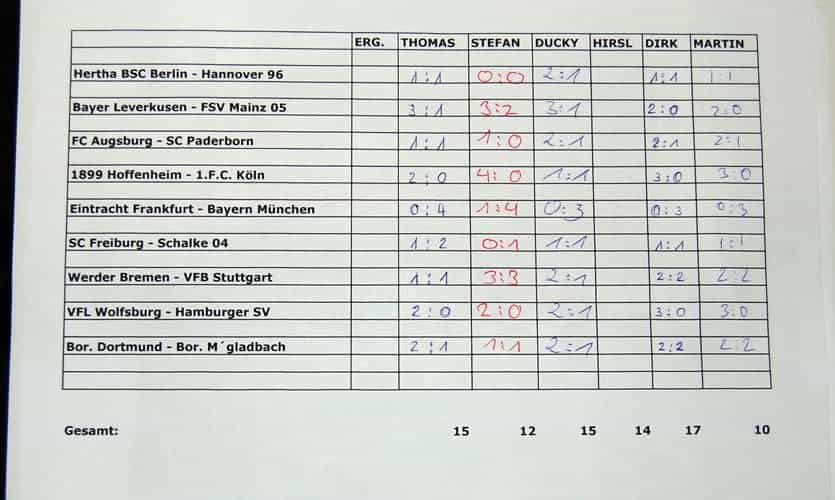 ERG. THOMAS STEFAN DUCKY HIRSL DIRK MARTIN
Hertha BSC Berlin - Hannover 96 1:1 0:0 2:1 1:1 1:1
Bayer Leverkusen - FSV Mainz 05 3:1 3:2 3:1 2:0 2:0
FC Augsburg - SC Paderborn 1:1 1:0 2:1 2:1 2:1
1899 Hoffenheim - 1.F.C. Köln 2:0 4:0 1:1 3:0 3:0
Eintracht Frankfurt - Bayern München 0:4 1:4 0:3 0:3 0:3
SC Freiburg - Schalke 04 1:2 0:1 1:1 1:1 1:1
Werder Bremen - VFB Stuttgart 1:1 3:3 2:1 2:2 2:2
VFL Wolfsburg - Hamburger SV 2:0 2:0 2:1 3:0 3:0
Bor. Dortmund - Bor. M´gladbach 2:1 1:1 2:1 2:2 2:2
Gesamt: 15 12 15 14 17 10